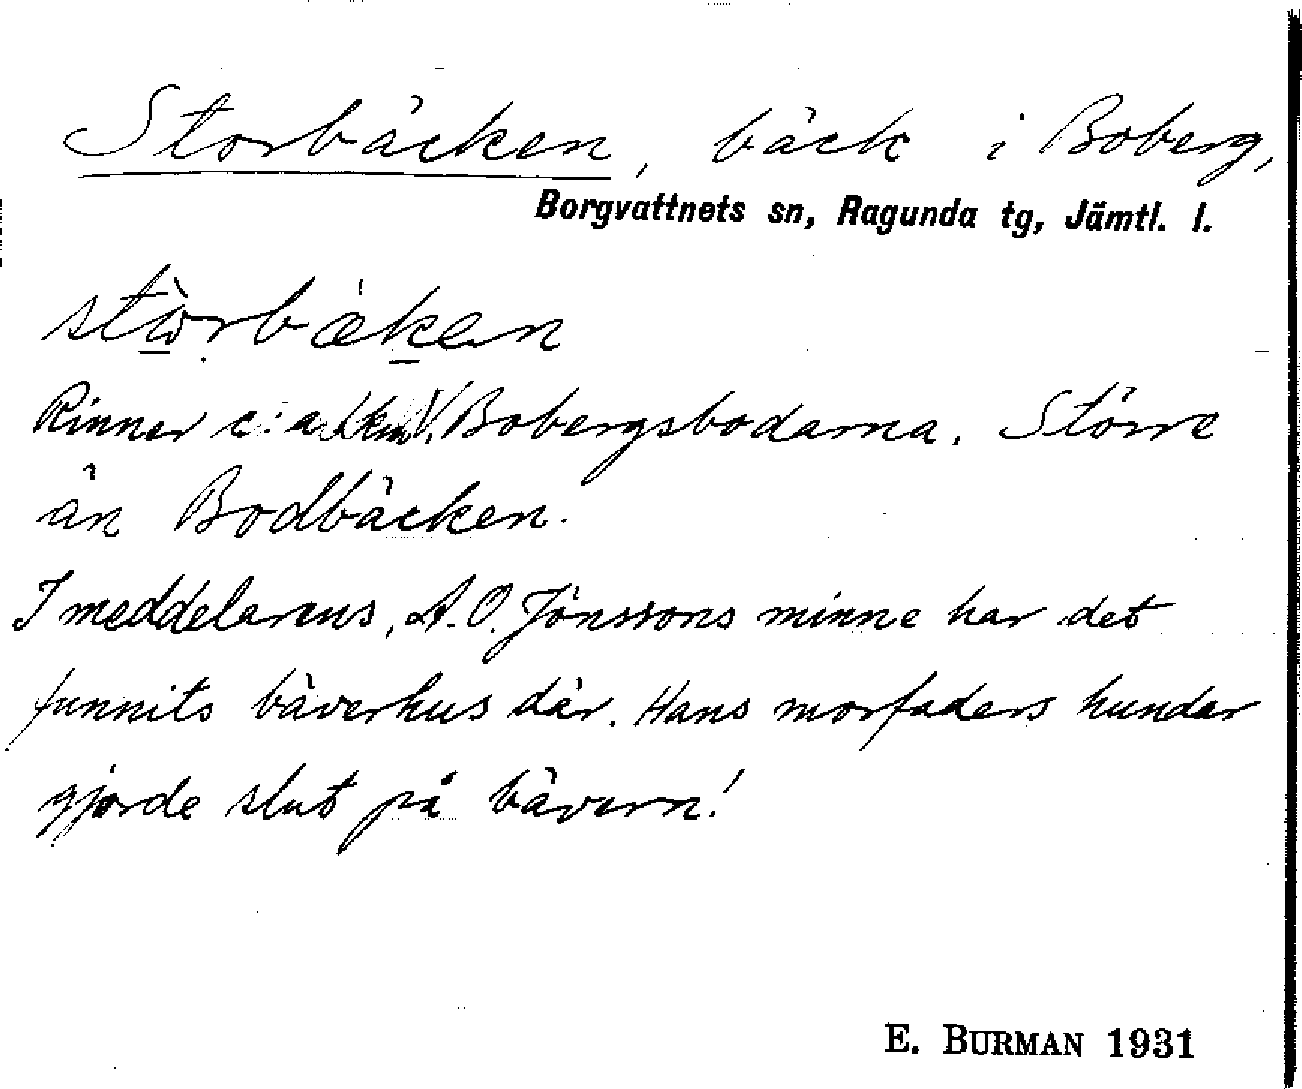 Storbäcken, bäck i Boberg,
Borgvattnets sn, Ragunda tg, Jämtl. l.
Rinner c:a 1 km V. Bobergsbodarna. Större
än Bodbäcken.
I meddelarens, A. O. Jönssons minne har det
funnits bäverhus där. Hans morfaders hundar
gjorde slut på bävern!
E. BURMAN 1931